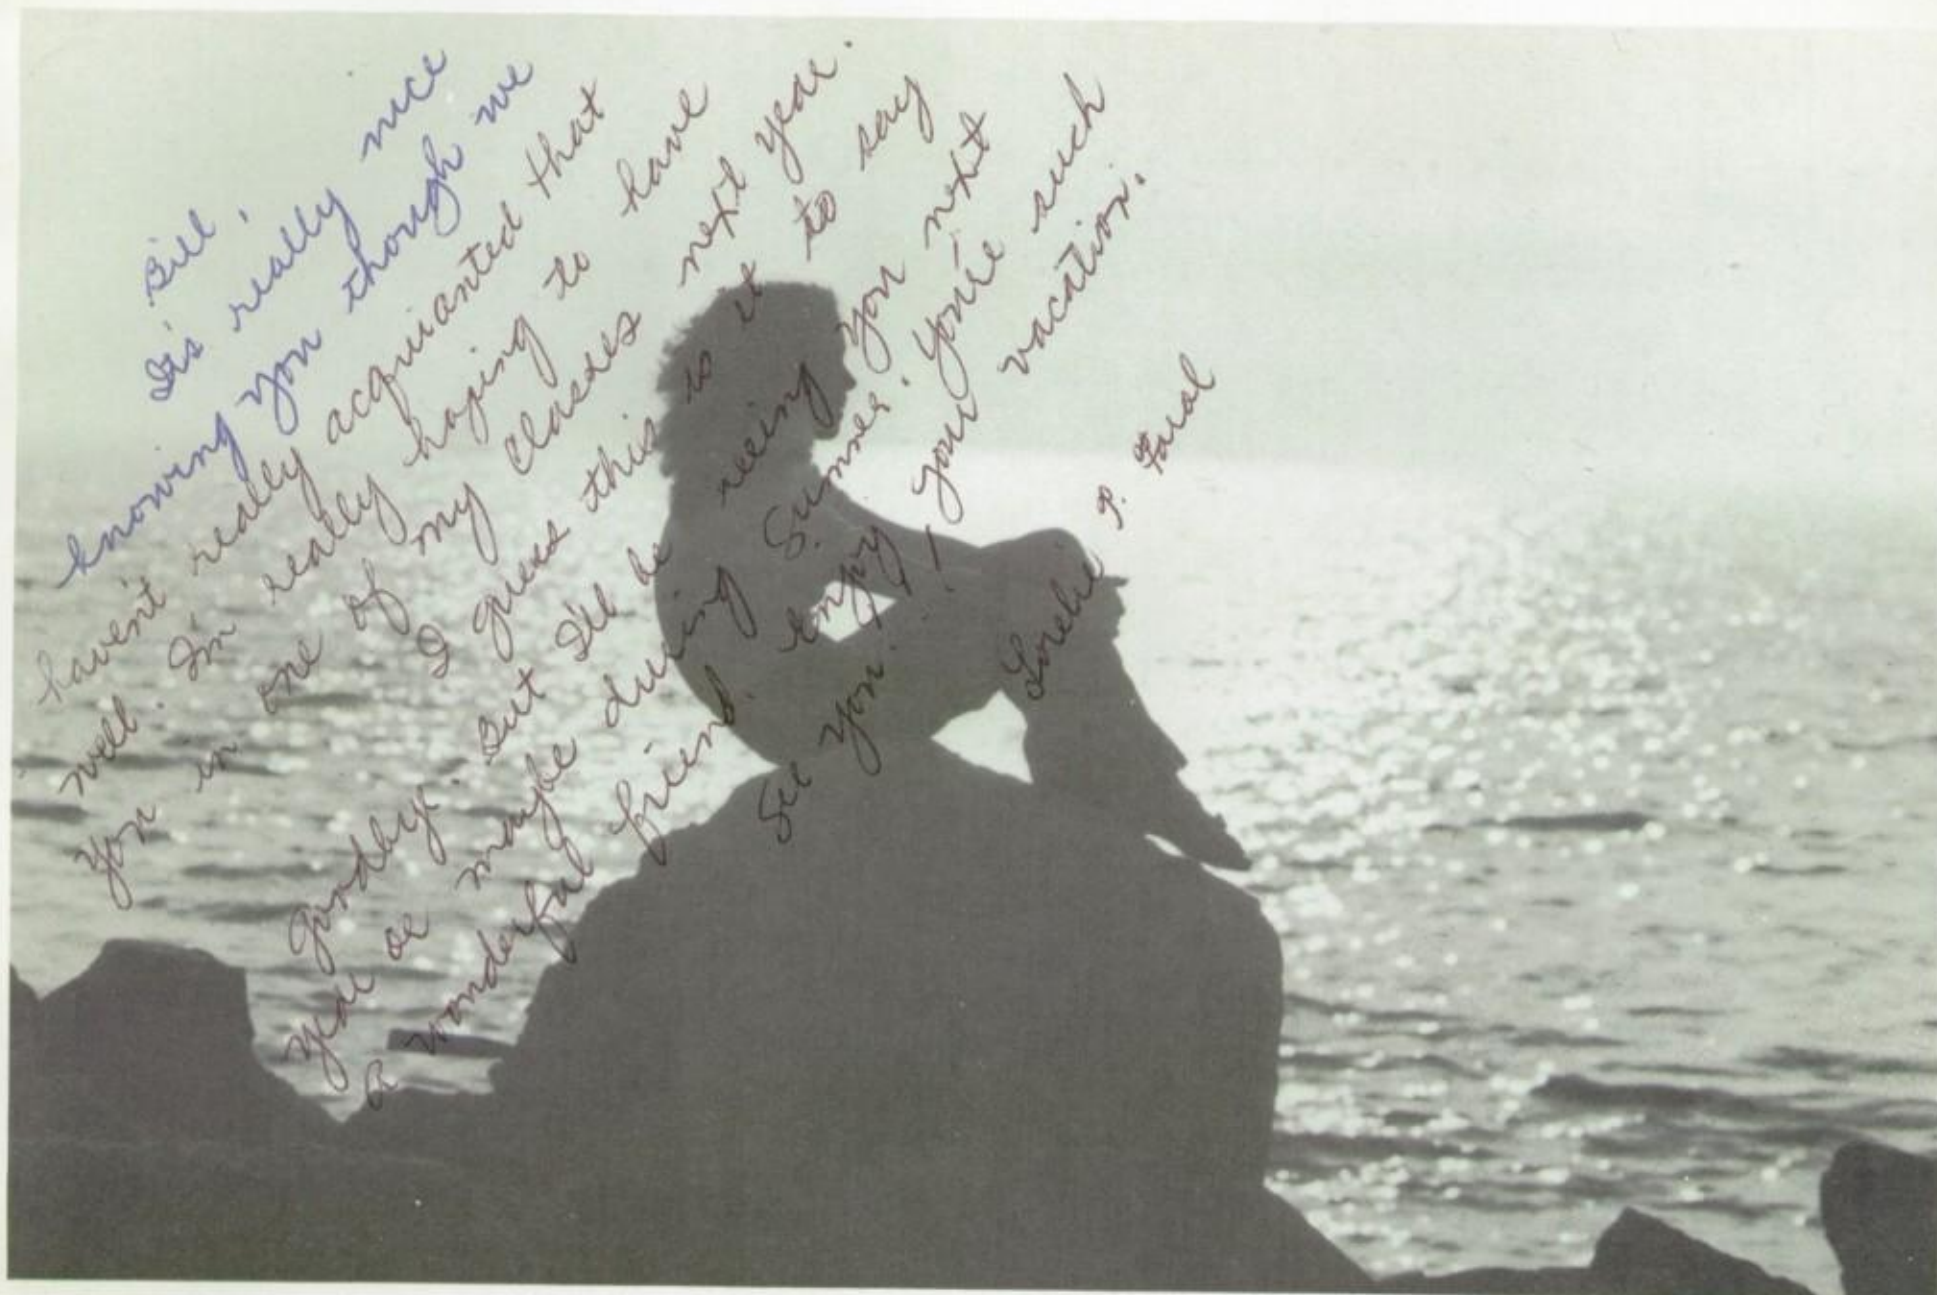 Bill,
It's really nice
knowing you though we
haven't really acquianted that
well. I'm really hoping to have
you in one of my classes next year.
I guess this is it to say
goodbye. But I'll be seeing you next
year or maybe during Summer. You're such
a wonderful friend. Enjoy your vacation.
See you!!
P.